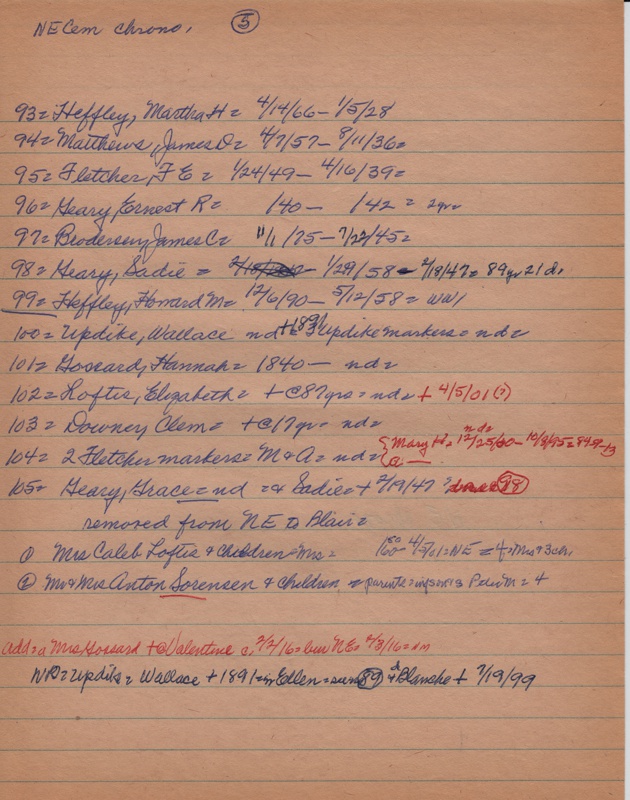 NECem chrono. 5
93= Heffley, Martha H= 4/14/66 - 1/5/28
94= Matthews, James O= 4/7/57 - 8/11/36=
95= Fletcher, F E= 1/24/49 - 4/16/39=
96= Geary, Ernest R= /40 - /42= 2yr=
97= Brodersen, James C= 11/1/75 - 7/22/45=
98= Geary, Sadie = 1/29/58 - 2/18/47= 89yr 21 ds
99= Heffley, Howard M= 12/6/90 - 5/12/58= WW1
100= Updike, Wallace nd +1891 updike markers= nd=
101= Gossard, Hannah= 1840 - nd=
102= Loftis, Elizabeth= + C87yrs= nd= + 4/5/01(?)
103= Downey Clem= + C17yr= nd=
104= 2 Fletcher markers= M & A= nd= { Mary H= nd= 12/25/60 - 10/8/95=
a —
105= Geary, Grace= nd =& Sadie= + 2/19/47 98
removed from NE to Blair=
① Mrs Caleb Loftis & children Mrs= 4/5/01=NE = 4= Mrs + 3ch.
② Mr & Mrs Anton Sorensen & children = parents = Peter M= 4
add= a Mrs Gossard + @ Valentine c. 2/2/16= bur NE= 2/3/16=
Updike= Wallace + 1891= Edlen= 89 & Blanche + 7/19/99